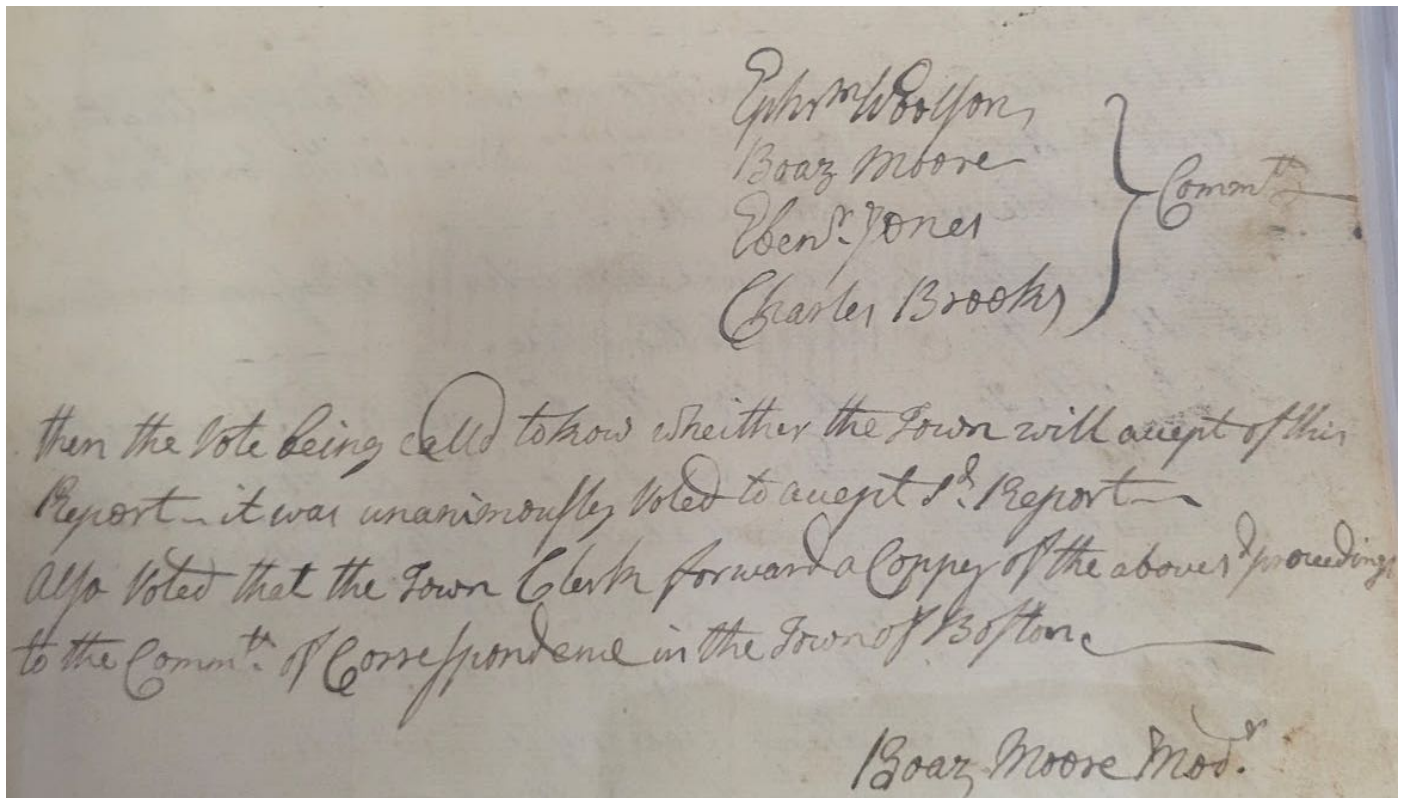 Ephrm Woolson
Boaz Moore
Ebenr. Jones
Charles Brooks
Commtt
then the Vote being calld to know wheither the Town will accept of this
Report - it was unanimously Voted to accept sd. Report -
also Voted that the Town Clerk forward a Coppey of the abovesd proceedings
to the Commtt. of Correspondence in the Town of Boston
Boaz Moore Modr.